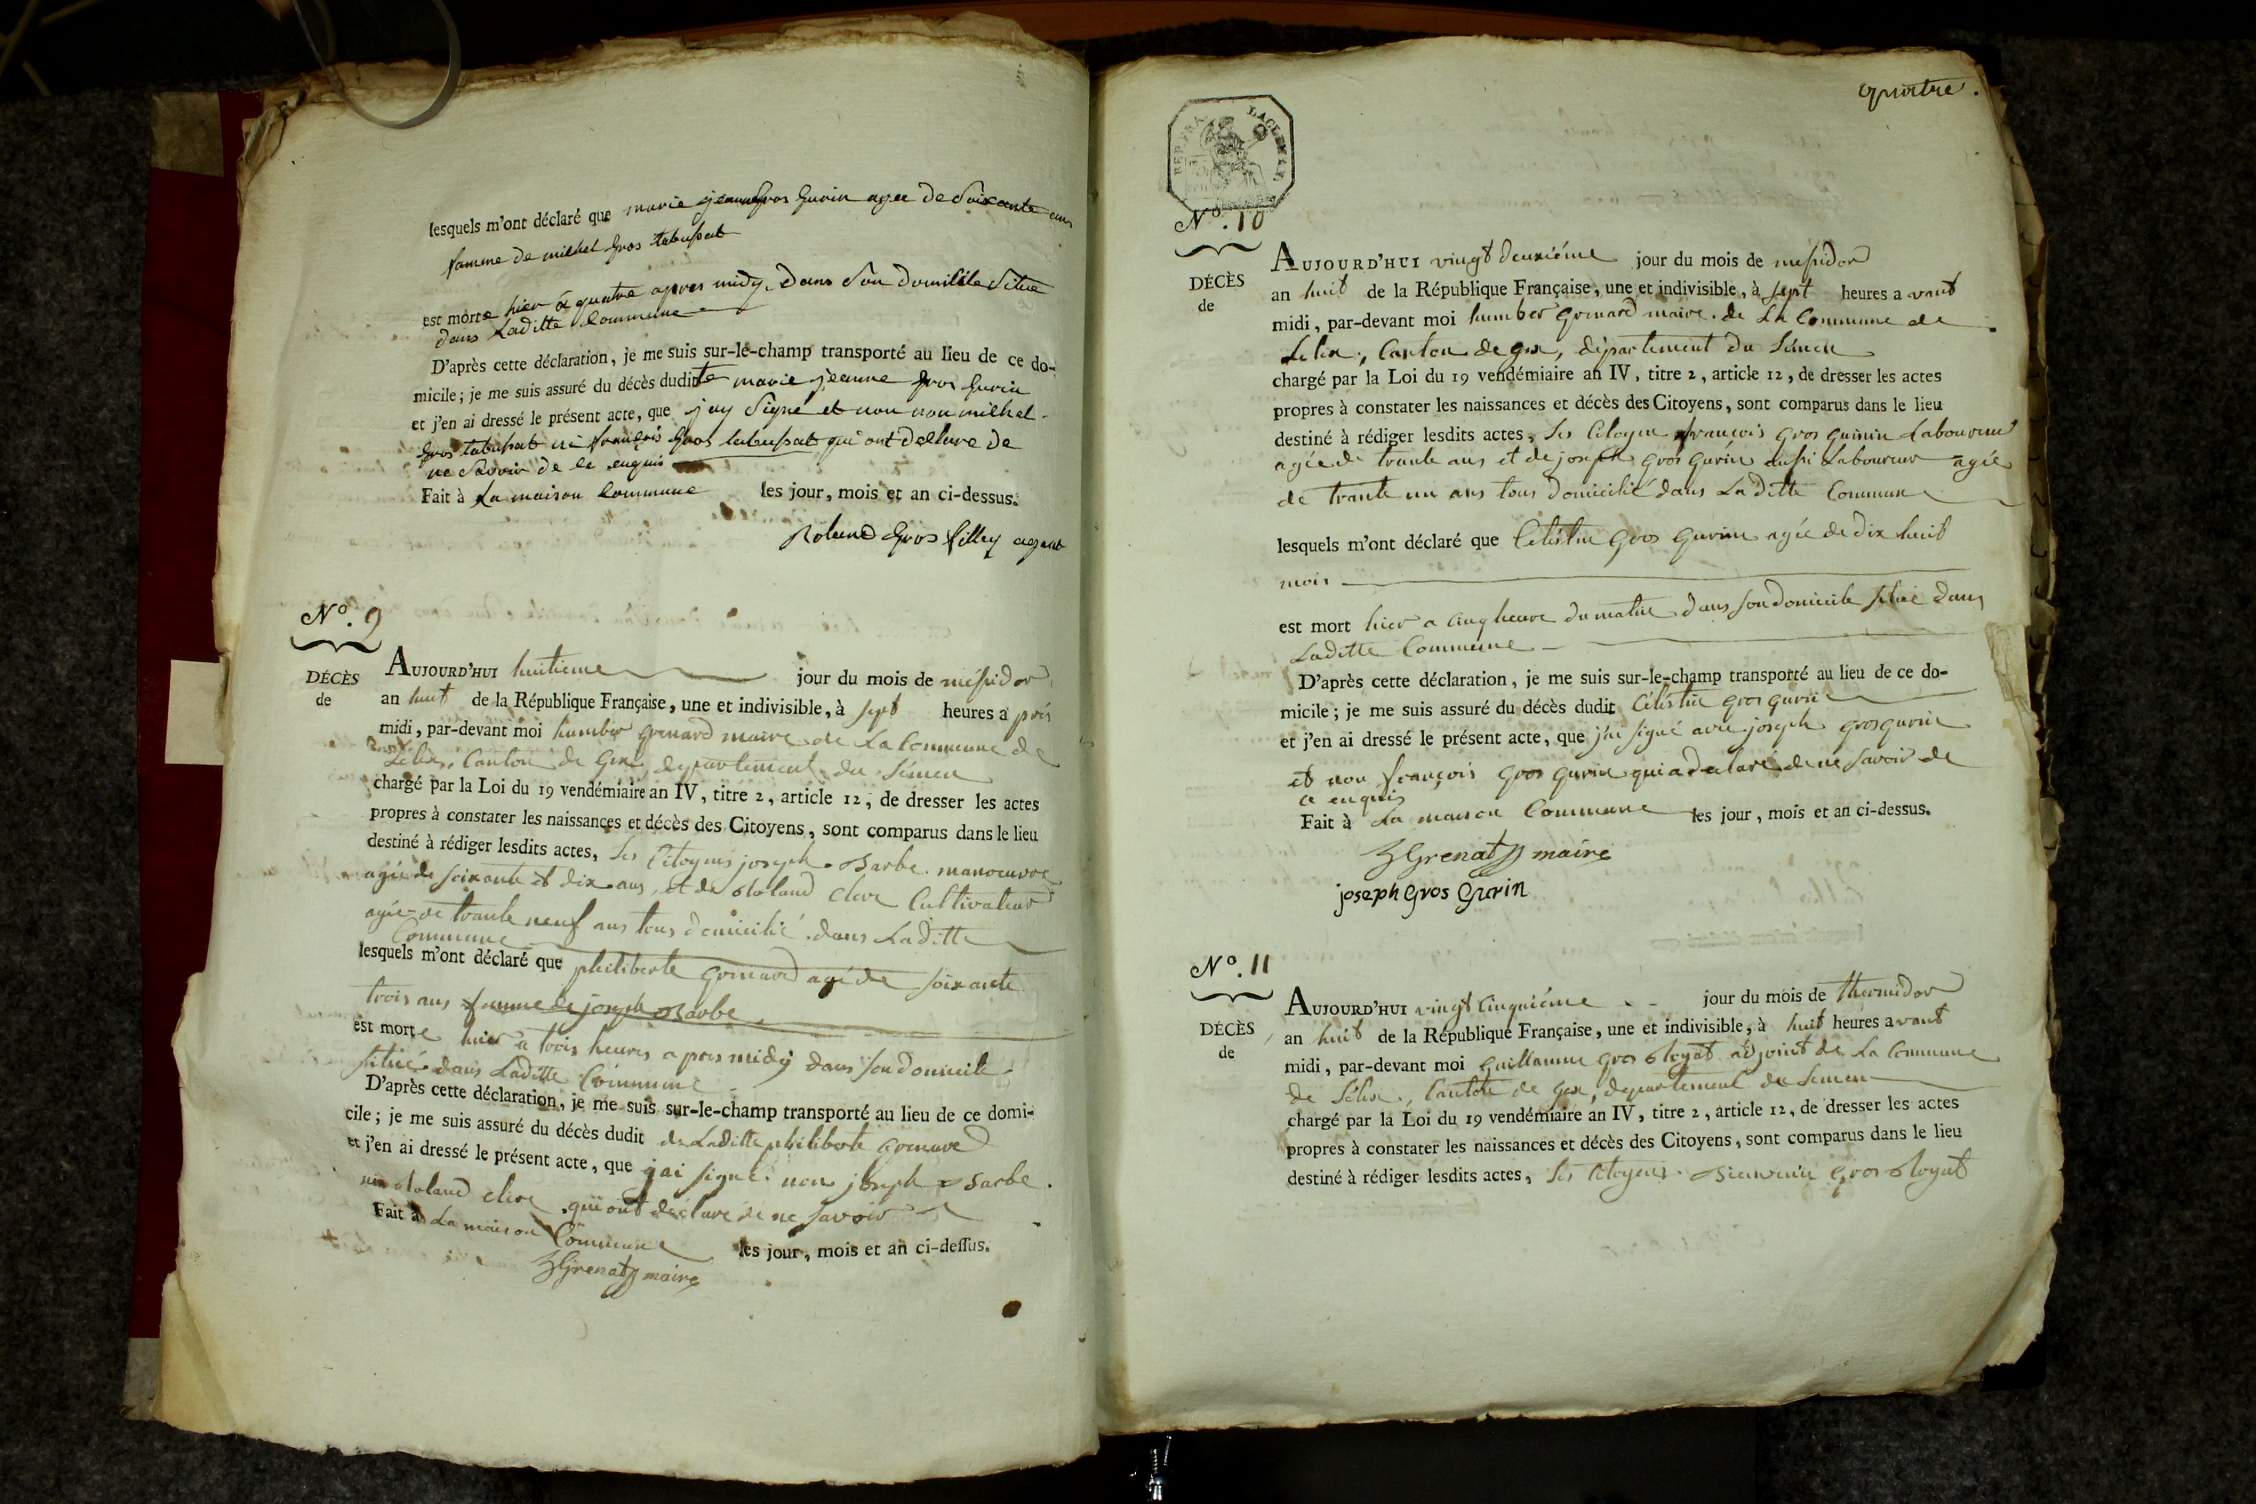 lesquels m'ont déclaré que marie jeanne gros Gurin agee de Soixante ans
famme de michel gros tabussat
est morte hier à quatre apres midy, dans Son domilile Situe
dans Laditte Commune
D'après cette déclaration, je me suis sur-le-champ transporté au lieu de ce do-
micile; je me suis assuré du décès dudit te marie jeanne gros Gurin
et j'en ai dressé le présent acte, que jay Signe et non non michel
gros tabusat ni françois gros tabusat qui ont declare de
ne Savoir de ce enquis
Fait à La maison Commune les jour, mois et an ci-dessus.
Roland Gros filley agent
N°. 9
DÉCÈS
de
AUJOURD'HUI huitieme jour du mois de messidor
an huit de la République Française, une et indivisible, à sept heures a prés
midi, par-devant moi humber grenard maire de La Commune de
Lelex, Canton de Gex, departement du Léman
chargé par la Loi du 19 vendémiaire an IV, titre 2, article 12, de dresser les actes
propres à constater les naissances et décès des Citoyens, sont comparus dans le lieu
destiné à rédiger lesdits actes, Les Citoyens joseph Barbe manoeuvre
agée de soixante et dix ans, et de Roland Cultivateur
agée de trante neuf ans tous domicilié dans Laditte
Commune
lesquels m'ont déclaré que philiberte grenard agé de soixante
trois ans famme de joseph Barbe
est morte hier a trois heures a pres midy dans son domicile
situé dans Laditte Commune
D'après cette déclaration, je me suis sur-le-champ transporté au lieu de ce domi-
cile; je me suis assuré du décès dudit de Laditte philiberte grenard
et j'en ai dressé le présent acte, que jai signé non joseph Barbe
ni Roland qui ont déclaré de ne savoir
Fait à La maison Commune les jour, mois et an ci-dessus.
Grenat maire
quatre.
REP. FRA.
N°. 10
DÉCÈS
de
AUJOURD'HUI vingt deuxiéme jour du mois de messidor
an huit de la République Française, une et indivisible, à sept heures a vant
midi, par-devant moi humber grenard maire de La Commune de
Lelex, Canton de gex, département du Léman
chargé par la Loi du 19 vendémiaire an IV, titre 2, article 12, de dresser les actes
propres à constater les naissances et décès des Citoyens, sont comparus dans le lieu
destiné à rédiger lesdits actes, Les Citoyen françois gros gurin Laboureur
agée de trante ans et de joseph gros gurin aussi Laboureur agée
de trante un ans tous domicilié dans La ditte Commune
lesquels m'ont déclaré que Celestin gros gurin agée de dix huit
mois
est mort hier a cinq heure du matin dans son domicile situé dans
Laditte Commune
D'après cette déclaration, je me suis sur-le-champ transporté au lieu de ce do-
micile; je me suis assuré du décès dudit Célestin gros gurin
et j'en ai dressé le présent acte, que j'ai signé avec joseph gros gurin
et non françois gros gurin qui a declaré de ne savoir de
ce enquis
Fait à La maison Commune les jour, mois et an ci-dessus.
Grenat maire
joseph Gros Gurin
N°. 11
DÉCÈS
de
AUJOURD'HUI vingt cinquiéme jour du mois de thermidor
an huit de la République Française, une et indivisible, à huit heures avant
midi, par-devant moi Guillaume gros Royat adjoint de La Commune
de Lélex, Canton de gex, departement du Leman
chargé par la Loi du 19 vendémiaire an IV, titre 2, article 12, de dresser les actes
propres à constater les naissances et décès des Citoyens, sont comparus dans le lieu
destiné à rédiger lesdits actes, Les Citoyens Bienvenu gros Royat